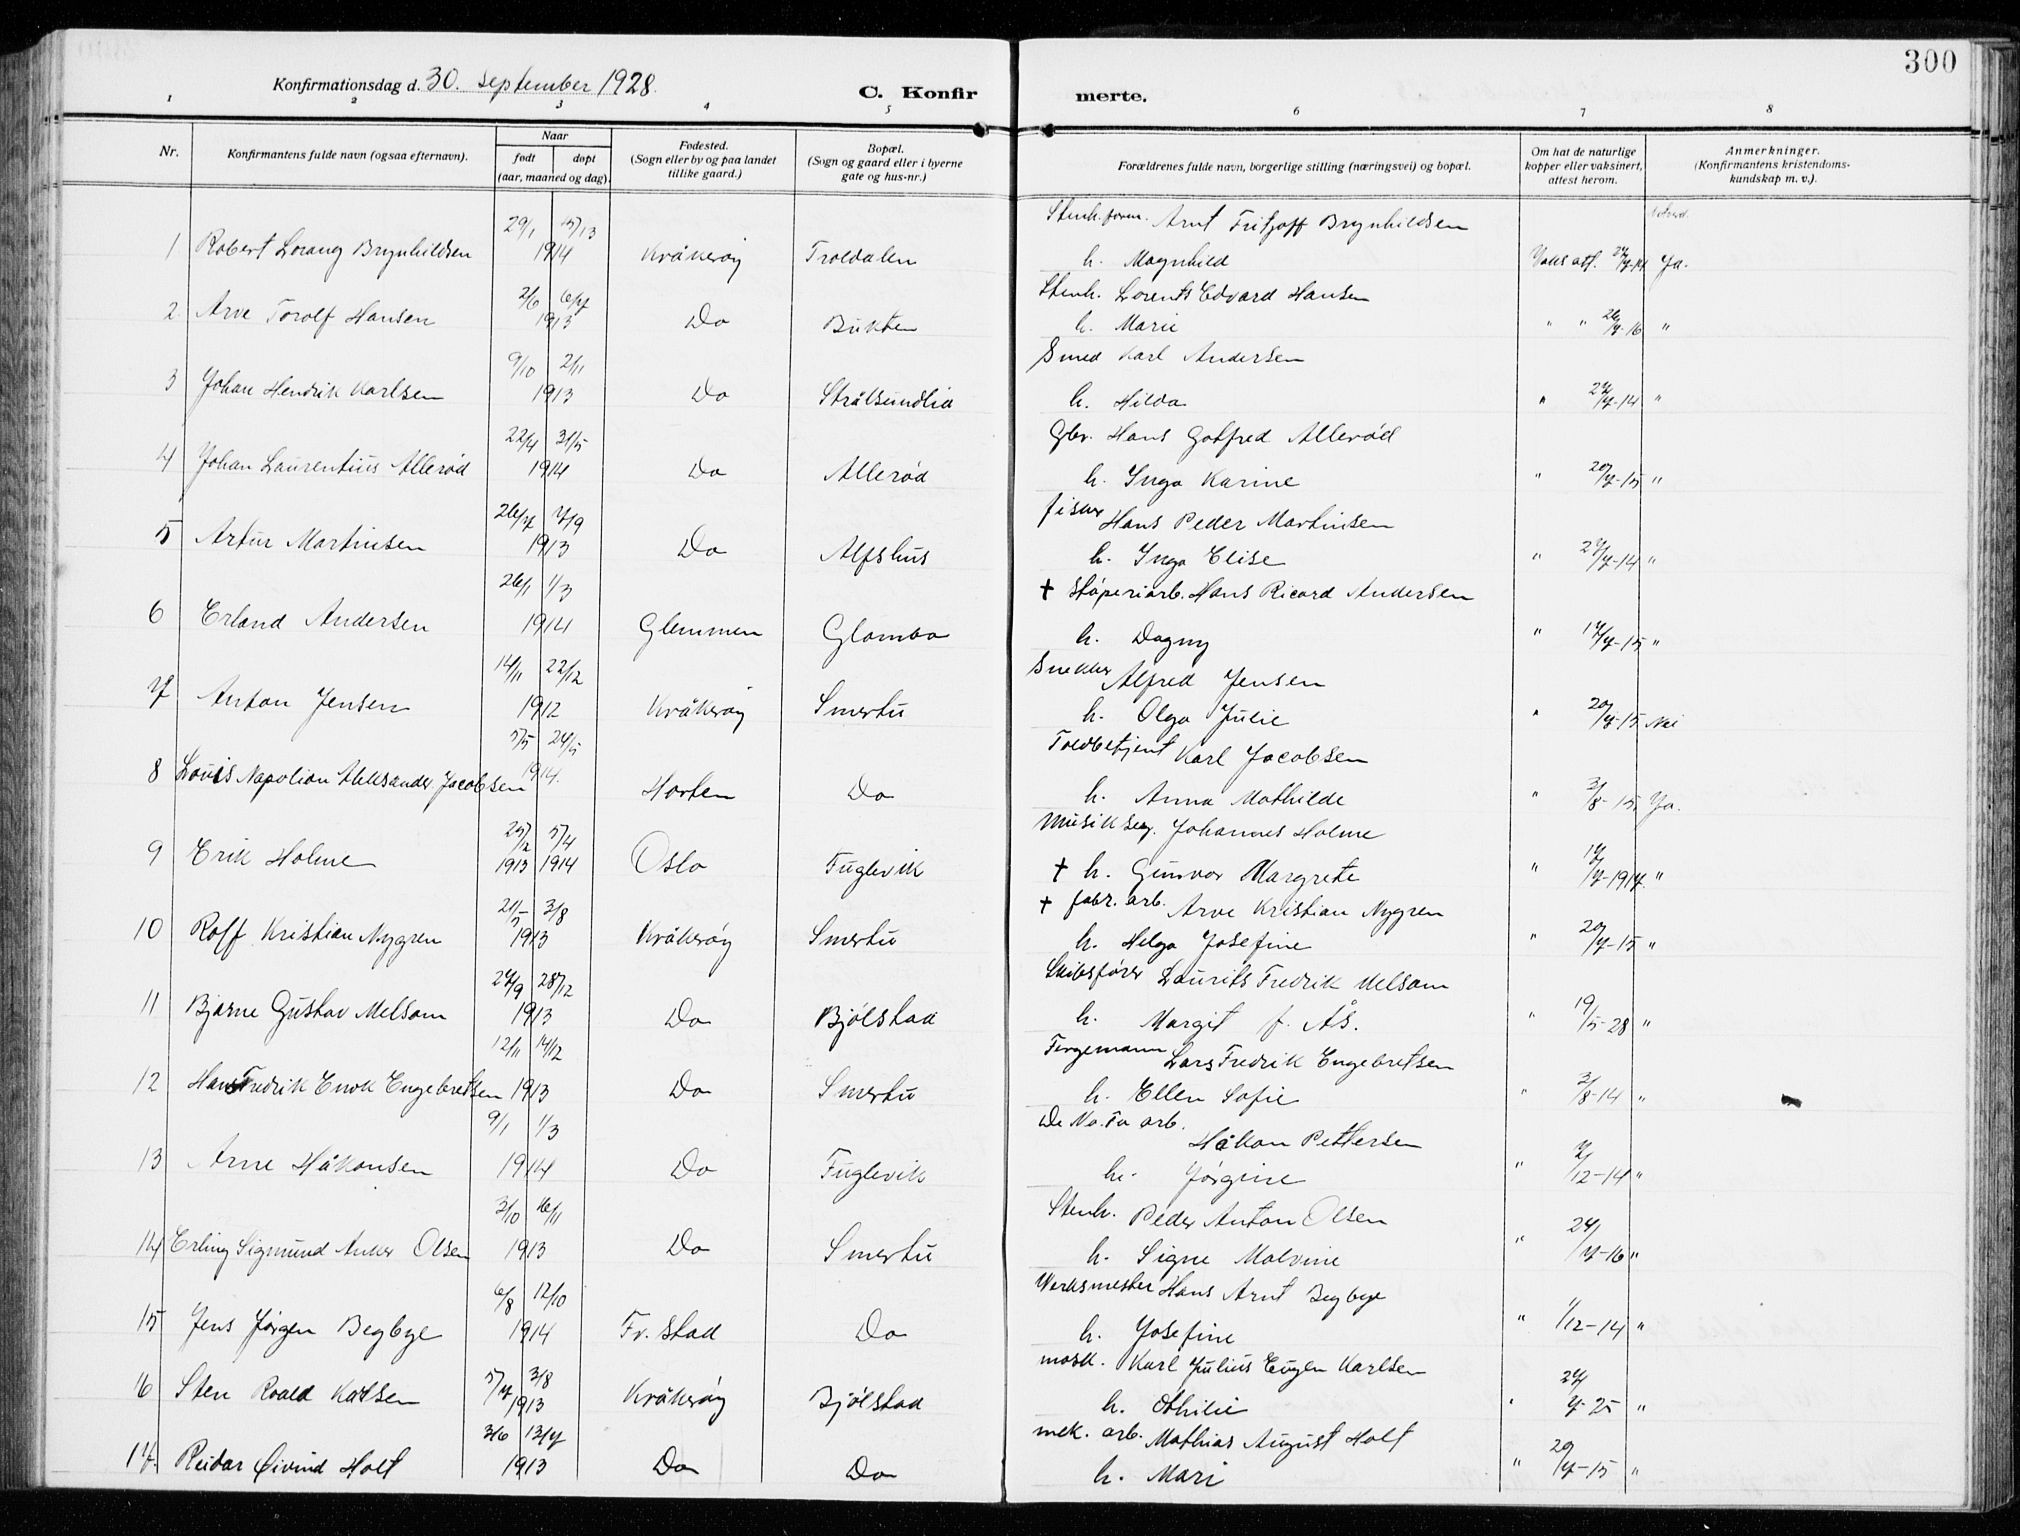 300
Konfirmationsdag d. 30. september 1928.
C. Konfirmerte.
1 2 3 4 5 6 7 8
Nr.
Konfirmantens fulde navn (ogsaa efternavn).
Naar
født døpt
(aar, maaned og dag).
Fødested.
(Sogn eller by og paa landet
tillike gaard.)
Bopæl.
(Sogn og gaard eller i byerne
gate og hus-nr.)
Forældrenes fulde navn, borgerlige stilling (næringsvei) og bopæl.
Om hat de naturlige
kopper eller vaksinert,
attest herom.
Anmerkninger.
(Konfirmantens kristendoms-
kundskap m. v.).
29/1 5/13 Stenh. form. Arnt Fritjoff Brynhildsen
1 Robert Lorang Brynhildsen 1914 Kråkerøy Troldalen h. Magnhild Vaks att. 24/7-14 Ja.
2/6 6/7 Stenh. Lorents Edvard Hansen
2 Arve Torolf Hansen 1913 Do Bukten h. Marie " " 26/7-16 "
9/10 2/11 Smed Karl Andersen
3 Johan Hendrik Karlsen 1913 Do Stråtsundlia h. Hilda " 27/7-14 "
22/4 31/5 Gbr. Hans Gotfred Allerød
4 Johan Laurentius Allerød 1914 Do Allerød h. Inga Karine " 20/7-15 "
26/7 7/9 fisker Hans Peder Martinsen
5 Artur Martinsen 1913 Do Alfshus h. Inga Elise " 27/7-14 "
26/1 1/3 † Støperiarb. Hans Ricard Andersen
6 Erland Andersen 1914 Glemmen Glombo h. Dagny " 17/7-15 "
14/11 22/12 Snekker Alfred Jensen
7 Anton Jensen 1912 Kråkerøy Smertu h. Olga Julie " 20/7-15 Nei
5/5 24/5 Toldbetjent Karl Jacobsen
8 Louis Napolion Aleksander Jacobsen 1914. Horten Do h. Anna Mathilde " 3/8-15 Ja.
25/12 5/4 Musik Johannes Holme
9 Erik Holme 1913 1914 Oslo Fuglevik † h. Gunvor Margrete " 17/7-1917. "
21/5 3/8 † fabr. arb. Arve Kristian Nygren
10 Rolf Kristian Nygren 1913 Kråkerøy Smertu h. Helga Josefine " 20/7-15 "
24/9 28/12 Skibsfører Laurits Fredrik Melsom
11 Bjarne Gustav Melsom 1913 Do Bjølstad h. Margit f. Ås. " 19/5-28 "
12/11 14/12 Fergemann Lars Fredrik Engebretsen
12 Hans Fredrik Enok Engebretsen 1913 Do Smertu h. Ellen Sofie " 3/8-14 "
9/1 1/3 De No. Fa arb. Håkon Pettersen
13 Arne Håkonsen 1914 Do Fuglevik h. Jørgine " 7/12-14 "
3/10 16/11 Stenh. Peder Anton Olsen
14 Erling Sigmund Anker Olsen 1913 Do Smertu h. Signe Malvine " 24/7-16 "
6/8 12/10 Verksmester Hans Arnt Begbye
15 Jens Jørgen Begbye 1914 Fr. stad Do h. Josefine " 1/12-14 "
5/7 3/8 mask. Karl Julius Eugen Karlsen
16 Sten Roald Karlsen 1913 Kråkerøy Bjølstad h. Othilie " 24/7-25 "
3/6 13/7 mek. arb. Mathias August Holt
17. Reidar Øivind Holt 1913 Do Do h. Mari " 20/7-15 "